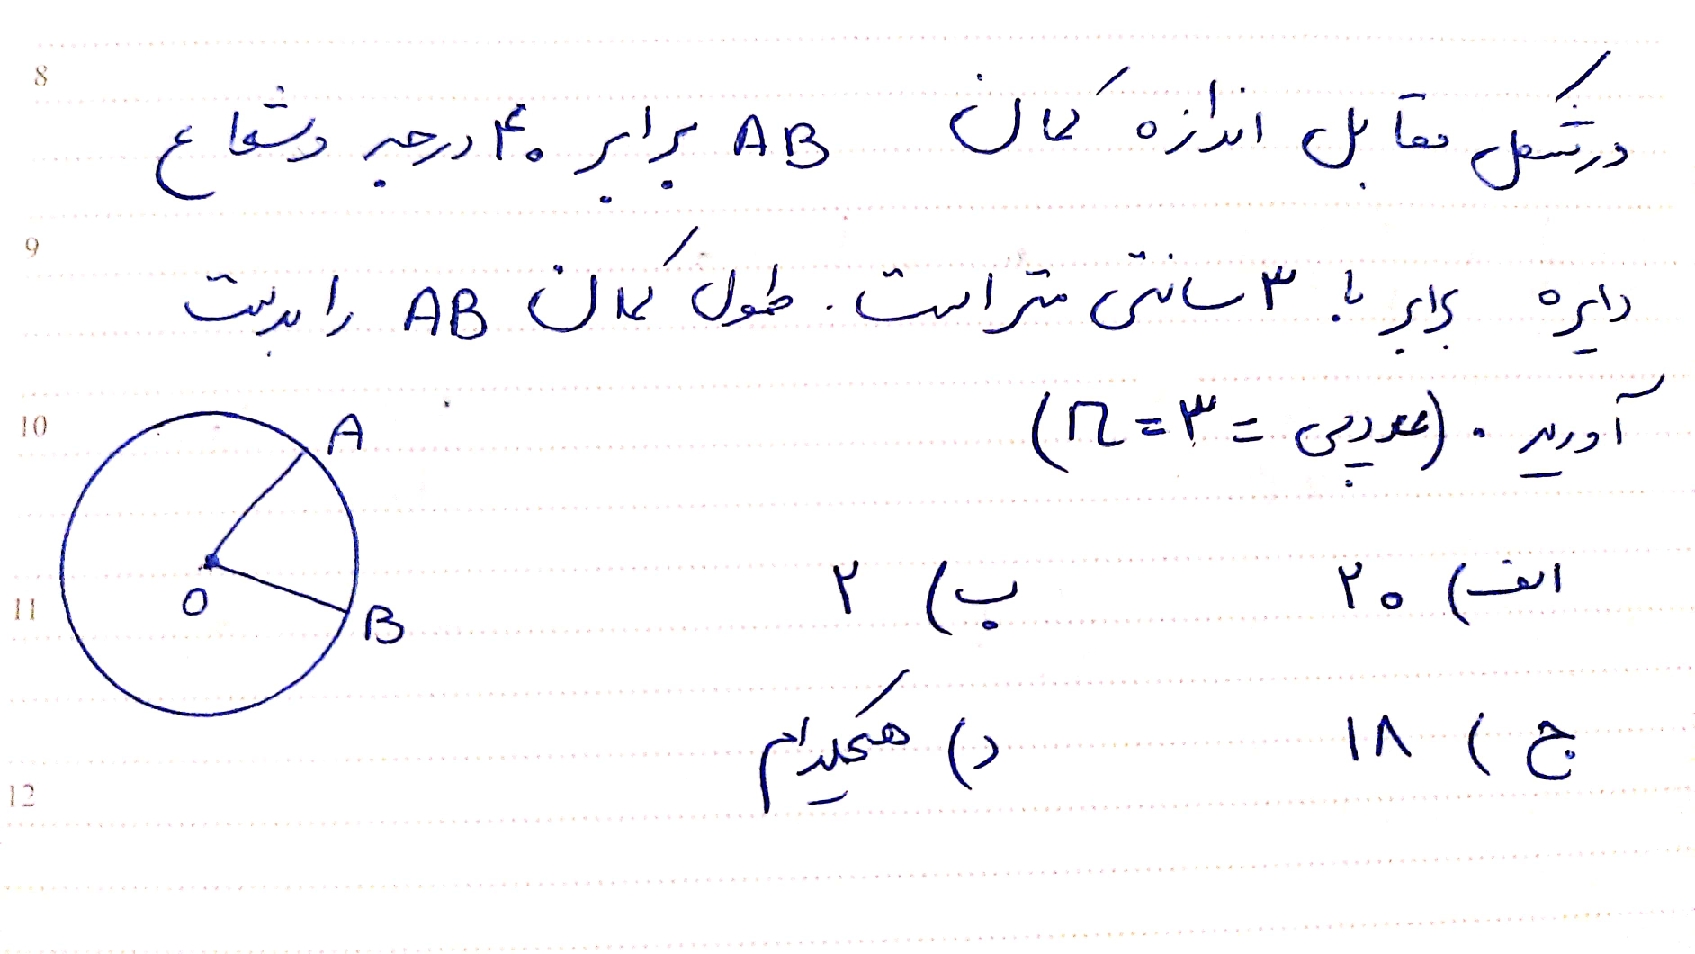 8
در شکل مقابل اندازه کمان AB برابر ۴۰ درجه و شعاع
9
دایره برابر با ۳ سانتی متر است. طول کمان AB را بدست
آورید. (عدد پی = ۳ = π)
10
A
O
B
11
الف) ۲۰ ب) ۲
ج) ۱۸ د) هیچکدام
12